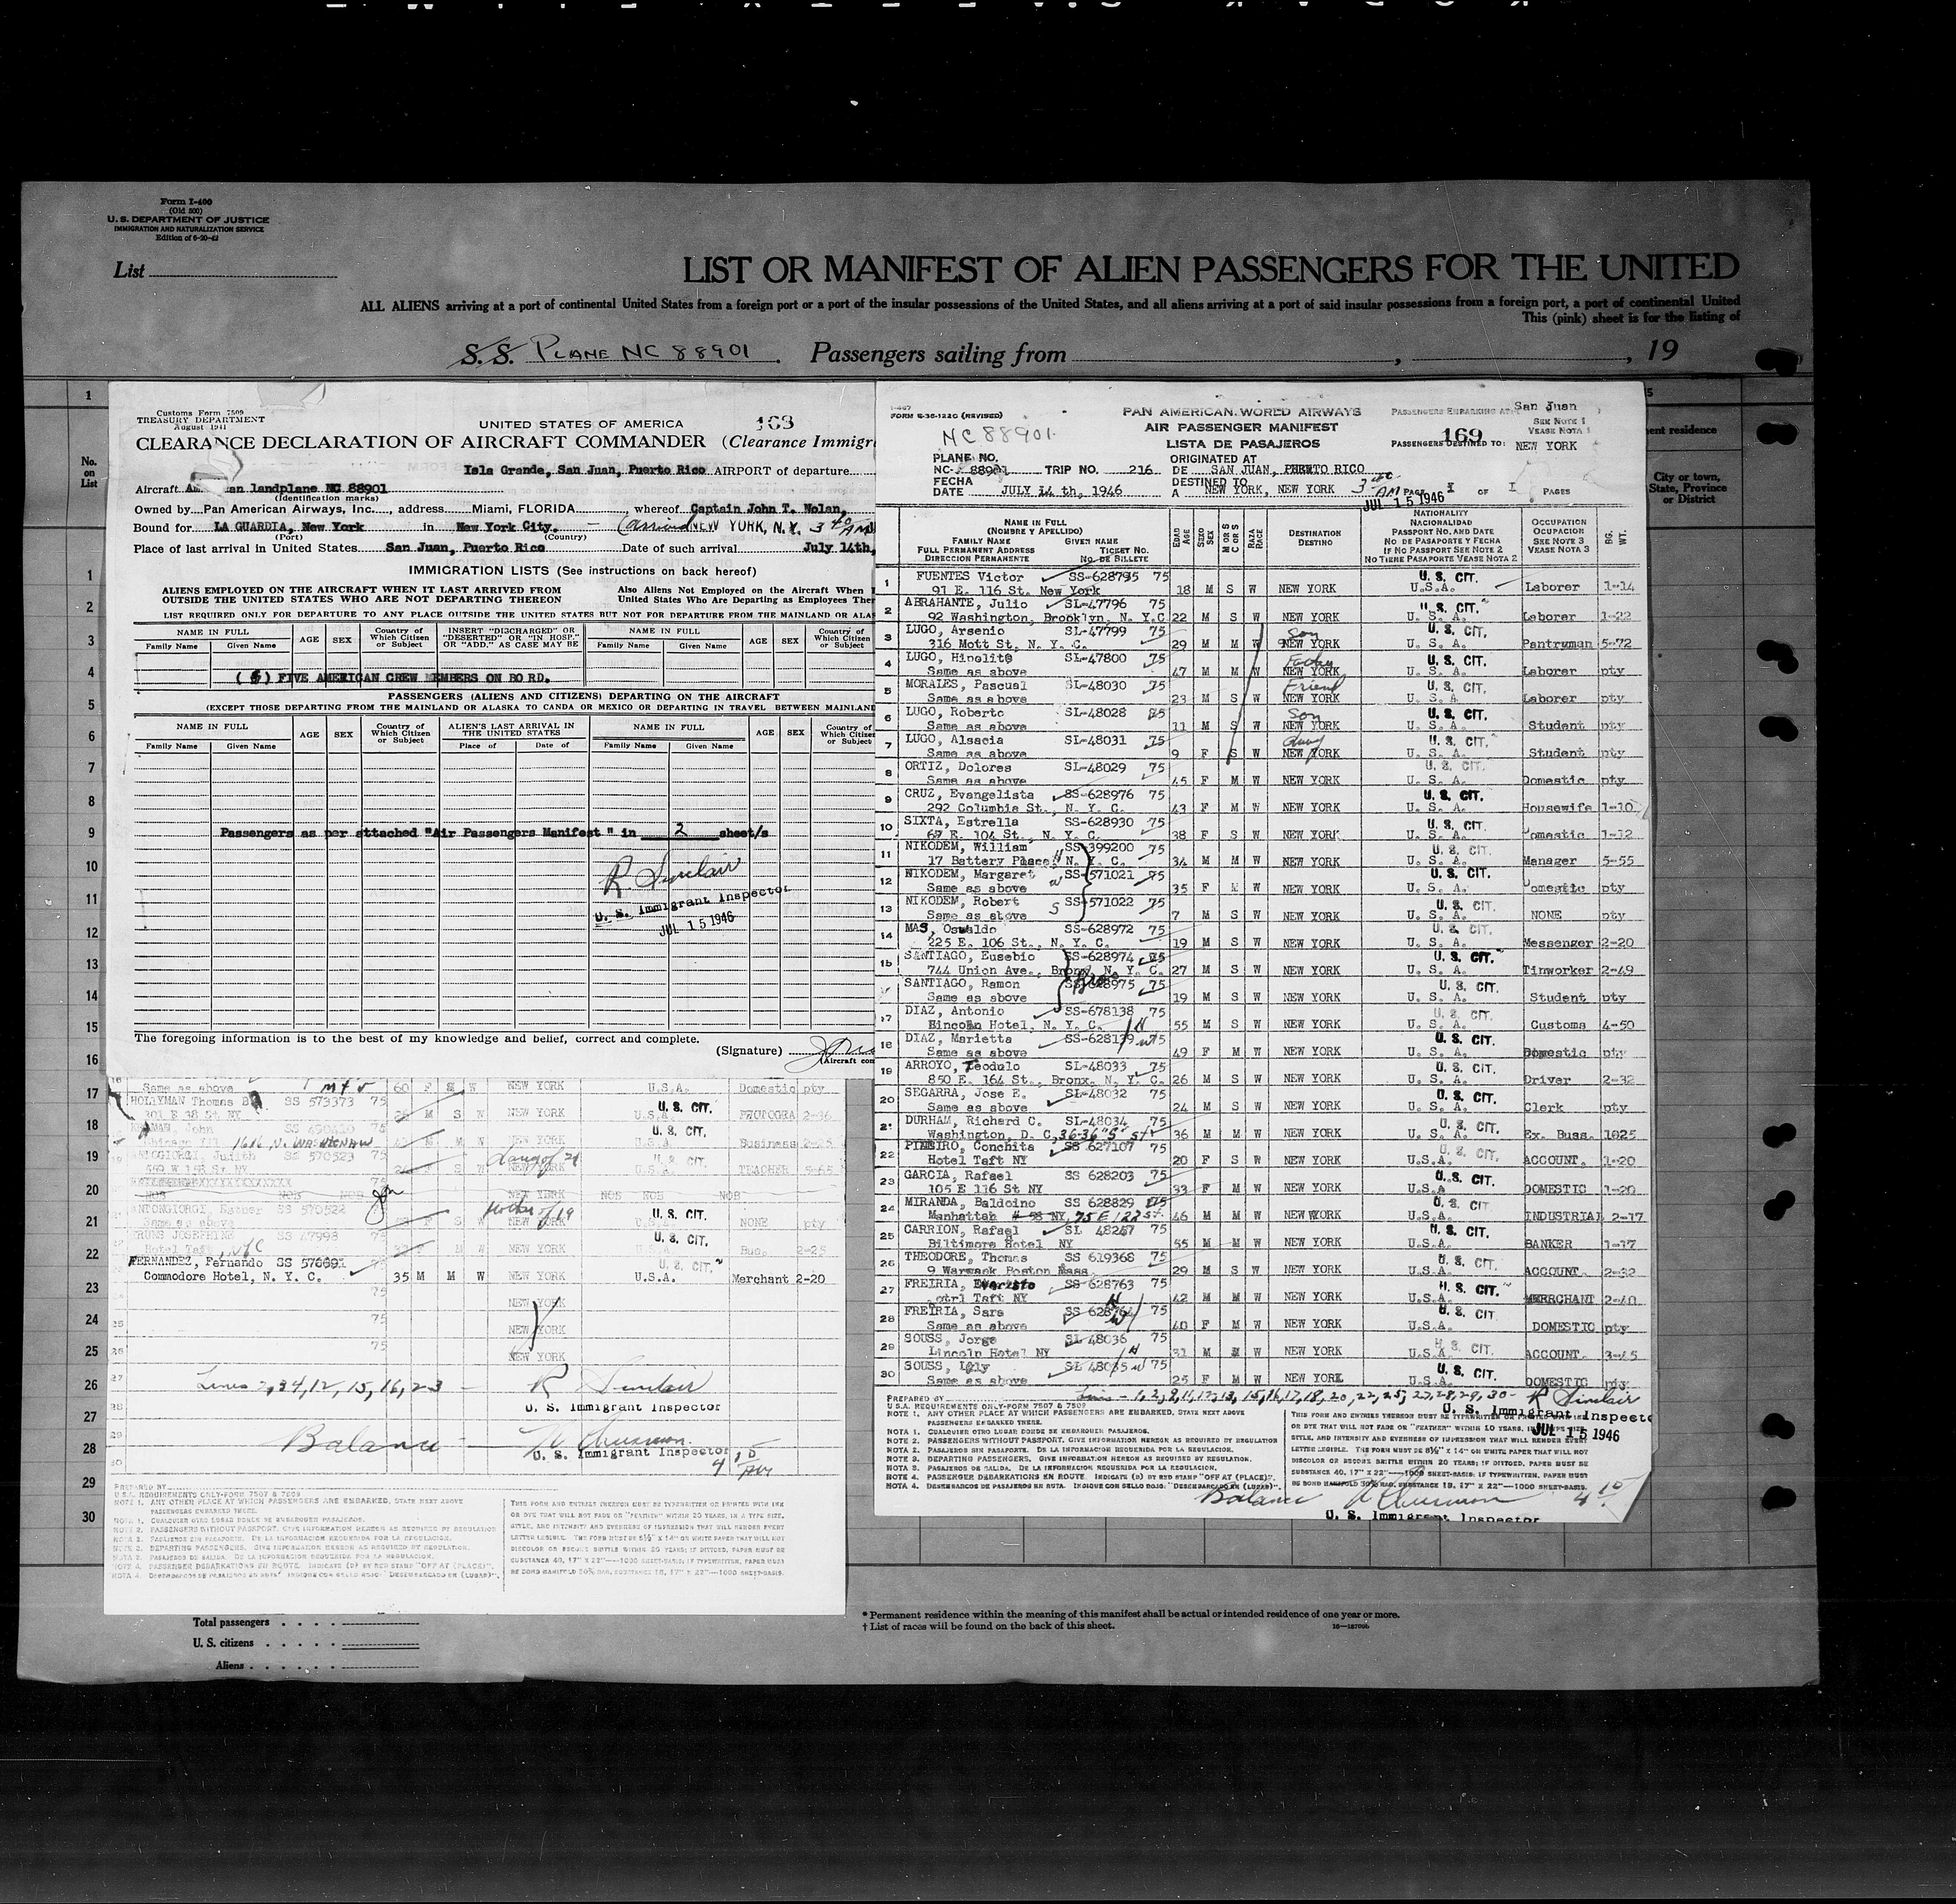 Form I-400
(Old 500)
U. S. DEPARTMENT OF JUSTICE
IMMIGRATION AND NATURALIZATION SERVICE
Edition of 6-20-42
List
LIST OR MANIFEST OF ALIEN PASSENGERS FOR THE UNITED
ALL ALIENS arriving at a port of continental United States from a foreign port or a port of the insular possessions of the United States, and all aliens arriving at a port of said insular possessions from a foreign port, a port of continental United
This (pink) sheet is for the listing of
S. S. PLANE NC 88901 . Passengers sailing from , , 19
No. on List
City or town, State, Province or District
Customs Form 7509
TREASURY DEPARTMENT
August 1941
UNITED STATES OF AMERICA
163
CLEARANCE DECLARATION OF AIRCRAFT COMMANDER (Clearance Immigr
Isla Grande, San Juan, Puerto Rico AIRPORT of departure
Aircraft landplane NC 88901
(Identification marks)
Owned by Pan American Airways, Inc., address Miami, FLORIDA, whereof Captain John T. Nolan,
Bound for LA GUARDIA, New York in New York City. NEW YORK, N.Y. 3 40 AM
(Port) (Country)
Place of last arrival in United States San Juan, Puerto Rico Date of such arrival July 14th,
IMMIGRATION LISTS (See instructions on back hereof)
ALIENS EMPLOYED ON THE AIRCRAFT WHEN IT LAST ARRIVED FROM OUTSIDE THE UNITED STATES WHO ARE NOT DEPARTING THEREON
Also Aliens Not Employed on the Aircraft When
United States Who Are Departing as Employees Ther
LIST REQUIRED ONLY FOR DEPARTURE TO ANY PLACE OUTSIDE THE UNITED STATES BUT NOT FOR DEPARTURE FROM THE MAINLAND OR ALAS
NAME IN FULL AGE SEX Country of Which Citizen or Subject INSERT "DISCHARGED" OR "DESERTED" OR "IN HOSP." OR "ADD." AS CASE MAY BE NAME IN FULL AGE SEX Country of Which Citizen or Subject
Family Name Given Name Family Name Given Name
( 5) FIVE AMERICAN CREW MEMBERS ON BO RD.
PASSENGERS (ALIENS AND CITIZENS) DEPARTING ON THE AIRCRAFT
(EXCEPT THOSE DEPARTING FROM THE MAINLAND OR ALASKA TO CANDA OR MEXICO OR DEPARTING IN TRAVEL BETWEEN MAINLAND
NAME IN FULL AGE SEX Country of Which Citizen or Subject ALIEN'S LAST ARRIVAL IN THE UNITED STATES NAME IN FULL AGE SEX Country of Which Citizen or Subject
Family Name Given Name Place of Date of Family Name Given Name
Passengers as per attached "Air Passengers Manifest" in 2 sheet/s
R Sinclair
U. S. Immigrant Inspector
JUL 15 1946
The foregoing information is to the best of my knowledge and belief, correct and complete.
(Signature)
(Aircraft com
Same as above 60 F W NEW YORK U.S.A. Domestic pty
HOLLYMAN Thomas B SS 573373 75
301 E 38 St NY M S W NEW YORK U.S.A. U. S. CIT.
John 75
Chicago Ill 1616 N. M M W NEW YORK U.S.A. U. S. CIT. Business
Judith SS 570523 75
NY F S W NEW YORK U.S.A. TEACHER 5-65
NOS NOS NOS NEW YORK NOS NOS NOS
SS 570522
Same as above F S W NEW YORK U. S. CIT. NONE pty
JOSEPHINE SS 47998
Hotel Taft, NYC M W NEW YORK U.S.A. U. S. CIT. Bus. 2-25
FERNANDEZ, Fernando SS 570691
Commodore Hotel, N. Y. C. 35 M M W NEW YORK U.S.A. U. S. CIT. Merchant 2-20
75 NEW YORK
75 NEW YORK
75 NEW YORK
Lines 2,34,12,15,16,23 — R Sinclair
U. S. Immigrant Inspector
Balance —
U. S. Immigrant Inspector
FORM (REVISED)
PAN AMERICAN WORLD AIRWAYS
AIR PASSENGER MANIFEST
LISTA DE PASAJEROS
NC 88901
PASSENGERS EMBARKING AT: San Juan
SEE NOTE 1
VEASE NOTA 1
169
PASSENGERS DESTINED TO: NEW YORK
PLANE NO.
NC- 88901 TRIP NO. 216
ORIGINATED AT
DE SAN JUAN, PUERTO RICO
FECHA
DATE JULY 14 th, 1946
DESTINED TO
A NEW YORK, NEW YORK
3 40 AM
PAGE I OF I PAGES
JUL 15 1946
NAME IN FULL
(NOMBRE Y APELLIDO)
FAMILY NAME GIVEN NAME
FULL PERMANENT ADDRESS TICKET NO.
DIRECCION PERMANENTE NO. DE BILLETE
EDAD AGE SEXO SEX M OR S C OR S RAZA RACE
DESTINATION
DESTINO
NATIONALITY
NACIONALIDAD
PASSPORT NO. AND DATE
NO DE PASAPORTE Y FECHA
IF NO PASSPORT SEE NOTE 2
NO TIENE PASAPORTE VEASE NOTA 2
OCCUPATION
OCUPACION
SEE NOTE 3
VEASE NOTA 3
BG. WT.
1 FUENTES Victor SS-628795 75
91 E. 116 St. New York 18 M S W NEW YORK U. S. CIT. U.S.A. Laborer 1-14
2 ABRAHANTE, Julio SL-47796 75
92 Washington, Brooklyn, N. Y.C 22 M S W NEW YORK U. S. CIT. U. S. A. Laborer 1-22
3 LUGO, Arsenio SL-47799 75
316 Mott St, N. Y. C. 29 M M W Son NEW YORK U. S. CIT. U. S. A. Pantryman 5-72
4 LUGO, Hipolito SL-47800 75
Same as above 47 M M W NEW YORK U. S. CIT. U. S. A. Laborer pty
5 MORALES, Pascual SL-48030 75
Same as above 23 M S W Friend NEW YORK U. S. CIT. U. S. A Laborer pty
6 LUGO, Roberto SL-48028 75
Same as above 11 M S W Son NEW YORK U. S. CIT. U. S. A. Student pty
7 LUGO, Alsacia SL-48031 75
Same as above 9 F S W NEW YORK U. S. CIT. U. S. A. Student pty
8 ORTIZ, Dolores SL-48029 75
Same as above 45 F M W NEW YORK U. S. CIT. U. S. A. Domestic pty
9 CRUZ, Evangelista SS-628976 75
292 Columbia St., N. Y. C. 43 F M W NEW YORK U. S. CIT. U. S. A. Housewife 1-10
10 SIXTA, Estrella SS-628930 75
67 E. 104 St., N. Y. C. 38 F S W NEW YORK U. S. CIT. U. S. A. Domestic 1-12
11 NIKODEM, William SS-399200 75
17 Battery Place, N. Y. C. 34 M M W NEW YORK U. S. CIT. U. S. A. Manager 5-55
12 NIKODEM, Margaret SS-571021 75
Same as above 35 F M W NEW YORK U. S. CIT. U. S. A. Domestic pty
13 NIKODEM, Robert S SS-571022 75
Same as above 7 M S W NEW YORK U. S. CIT. U. S. A. NONE pty
14 MAS, Oswaldo SS-628972 75
225 E. 106 St., N. Y. C. 19 M S W NEW YORK U. S. CIT. U. S. A. Messenger 2-20
15 SANTIAGO, Eusebio SS-628974 75
744 Union Ave., Bronx, N. Y. C. 27 M S W NEW YORK U. S. CIT. U. S. A. Tinworker 2-49
SANTIAGO, Ramon SS-628975 75
Same as above 19 M S W NEW YORK U. S. CIT. U. S. A. Student pty
17 DIAZ, Antonio SS-678138 75
Lincoln Hotel, N. Y. C. 55 M S W NEW YORK U. S. CIT. U. S. A. Customs 4-50
18 DIAZ, Marietta SS-628139 75
Same as above 49 F M W NEW YORK U. S. CIT. U. S. A. Domestic pty
19 ARROYO, Teodulo SL-48033 75
850 E. 164 St., Bronx, N. Y. C. 26 M S W NEW YORK U. S. CIT. U. S. A. Driver 2-32
20 SEGARRA, Jose E. SL-48032 75
Same as above 24 M S W NEW YORK U. S. CIT. U. S. A. Clerk pty
21 DURHAM, Richard C. SL-48034 75
Washington, D. C. 3636 "S" St 36 M M W NEW YORK U. S. CIT. U. S. A. Ex. Buss. 1025
22 PINEIRO, Conchita SS 627107 75
Hotel Taft NY 20 F S W NEW YORK U. S. CIT. U.S.A. ACCOUNT. 1-20
23 GARCIA, Rafael SS 628203 75
105 E 116 St NY 33 F M W NEW YORK U. S. CIT. U.S.A. DOMESTIC 1-20
24 MIRANDA, Baldoino SS 628829 75
Manhattan NY, 75 E 122 St. 46 M M W NEW YORK U. S. CIT. U.S.A. INDUSTRIAL 2-17
25 CARRION, Rafael SL 48247 75
Biltimore Hotel NY 55 M M W NEW YORK U. S. CIT. U.S.A. BANKER 1-37
26 THEODORE, Thomas SS 619368 75
9 Warwack Boston Mass. 29 M S W NEW YORK U. S. CIT. U.S.A. ACCOUNT. 2-32
27 FREIRIA, Evaristo SS 628763 75
Taft NY 42 M M W NEW YORK U. S. CIT. U.S.A. MERCHANT 2-40
28 FREIRIA, Sara SS 628764 75
Same as above 40 F M W NEW YORK U. S. CIT. U.S.A. DOMESTIC pty
29 SOUSS, Jorge SL 48036 75
Lincoln Hotel NY 31 M M W NEW YORK U. S. CIT. U.S.A. ACCOUNT. 3-45
30 SOUSS, Lily SL 48035 75
Same as above 25 F M W NEW YORK U. S. CIT. U.S.A. DOMESTIC pty
PREPARED BY
R Sinclair
U. S. Immigrant Inspecto
JUL 15 1946
U.S.A. REQUIREMENTS ONLY-FORM 7507 & 7509
NOTE 1. ANY OTHER PLACE AT WHICH PASSENGERS ARE EMBARKED, STATE NEXT ABOVE PASSENGERS EMBARKED THERE.
NOTA 1. CUALQUIER OTRO LUGAR DONDE SE EMBARQUEN PASAJEROS.
NOTE 2. PASSENGERS WITHOUT PASSPORT. GIVE INFORMATION HEREON AS REQUIRED BY REGULATION
NOTA 2. PASAJEROS SIN PASAPORTE. DE LA INFORMACION REQUERIDA POR LA REGULACION.
NOTE 3. DEPARTING PASSENGERS. GIVE INFORMATION HEREON AS REQUIRED BY REGULATION.
NOTA 3. PASAJEROS DE SALIDA. DE LA INFORMACION REQUERIDA POR LA REGULACION.
NOTE 4. PASSENGER DEBARKATIONS EN ROUTE. INDICATE (D) BY RED STAMP "OFF AT (PLACE)".
NOTA 4. DESEMBARCOS DE PASAJEROS EN RUTA. INDIQUE CON SELLO ROJO: "DESEMBARCADO EN (LUGAR)".
Balance
U. S. Immigrant Inspector
Total passengers
U. S. citizens
Aliens
* Permanent residence within the meaning of this manifest shall be actual or intended residence of one year or more.
† List of races will be found on the back of this sheet.